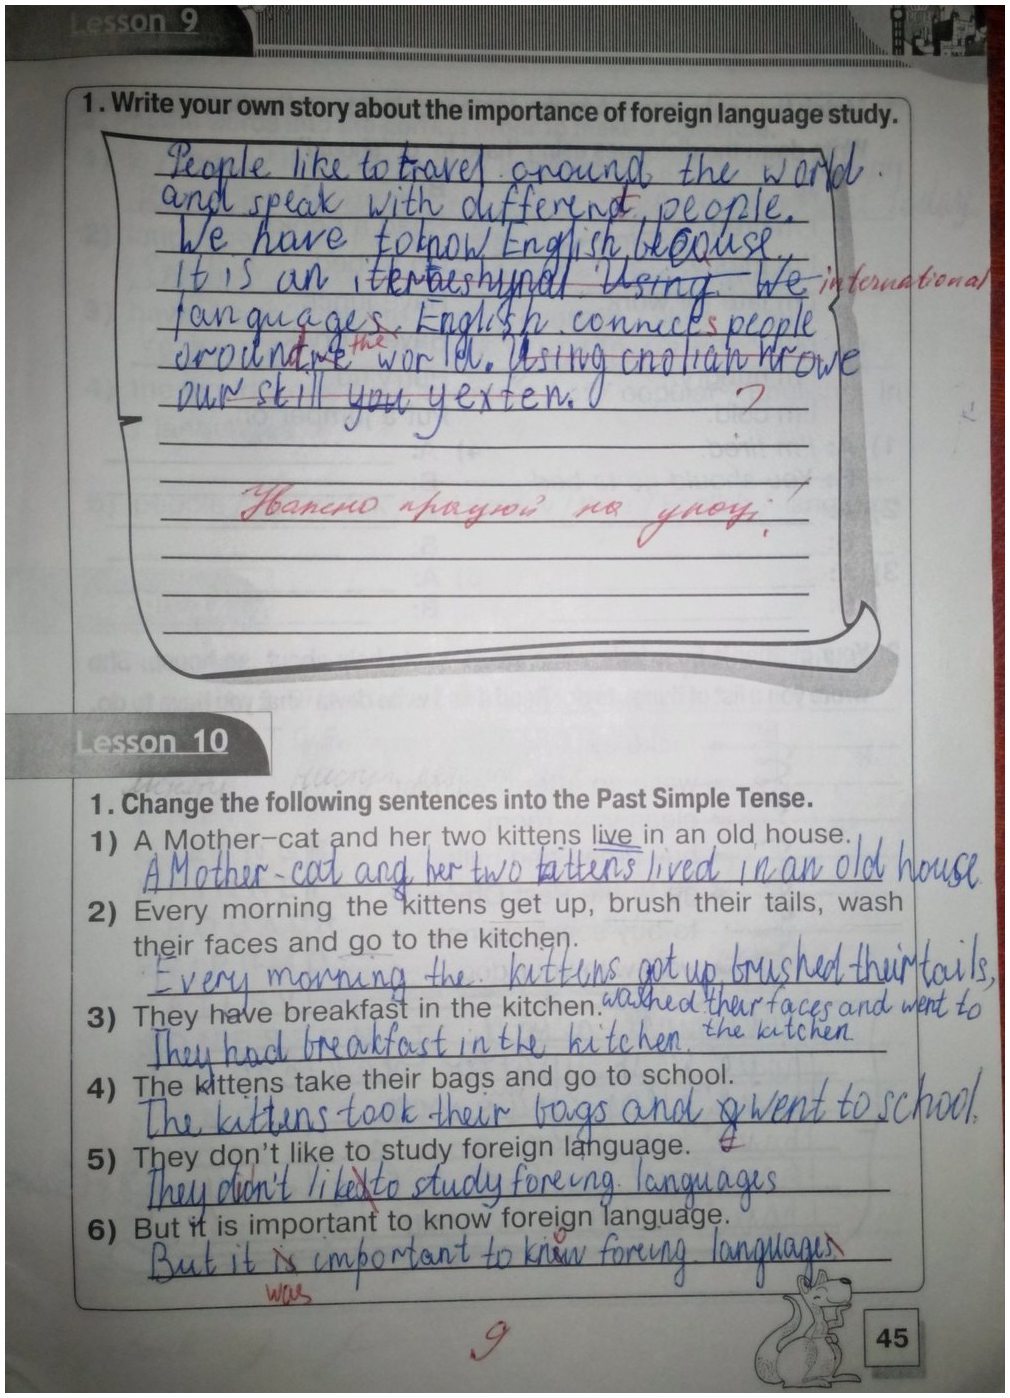 Lesson 9
1. Write your own story about the importance of foreign language study.
People like to travel around the world
and speak with different people.
We have to know English, because
it is an Using We international
languages. English connects people
around the world. Using
our skill you
Уважно працюй на уроці!
Lesson 10
1. Change the following sentences into the Past Simple Tense.
1) A Mother–cat and her two kittens live in an old house.
A Mother-cat and her two kittens lived in an old house
2) Every morning the kittens get up, brush their tails, wash
their faces and go to the kitchen.
Every morning the kittens got up, brushed their tails,
washed their faces and went to
the kitchen
3) They have breakfast in the kitchen.
They had breakfast in the kitchen.
4) The kittens take their bags and go to school.
The kittens took their bags and went to school.
5) They don't like to study foreign language.
They didn't liked to study foreing languages
6) But it is important to know foreign language.
But it is important to know foreing languages
was
9
45